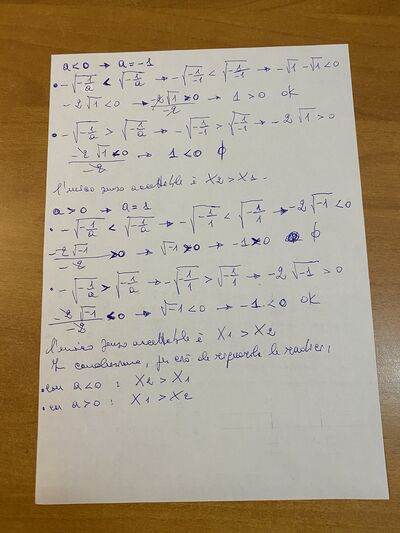 a<0 → a=-1
• -√(-1/a) < √(-1/a) → -√(-1/-1) < √(-1/-1) → -√1 -√1<0
-2√1<0 → -2√1/-2 >0 → 1>0 OK
• -√(-1/a) > √(-1/a) → -√(-1/-1) > √(-1/-1) → -2√1>0
-2√1/-2 <0 → 1<0 ∅
l'unico senso accettabile è X2>X1.
a>0 → a=1
• -√(-1/a) < √(-1/a) → -√(-1/1) < √(-1/1) → -2√-1<0
-2√-1/-2 >0 → √-1>0 → -1>0 ∅
• -√(-1/a) > √(-1/a) → -√(-1/1) > √(-1/1) → -2√-1>0
-2√-1/-2 <0 → √-1<0 → -1<0 OK
l'unico senso accettabile è X1>X2
In conclusione, per ciò che riguarda le radici,
• con a<0 : X2>X1
• con a>0 : X1>X2